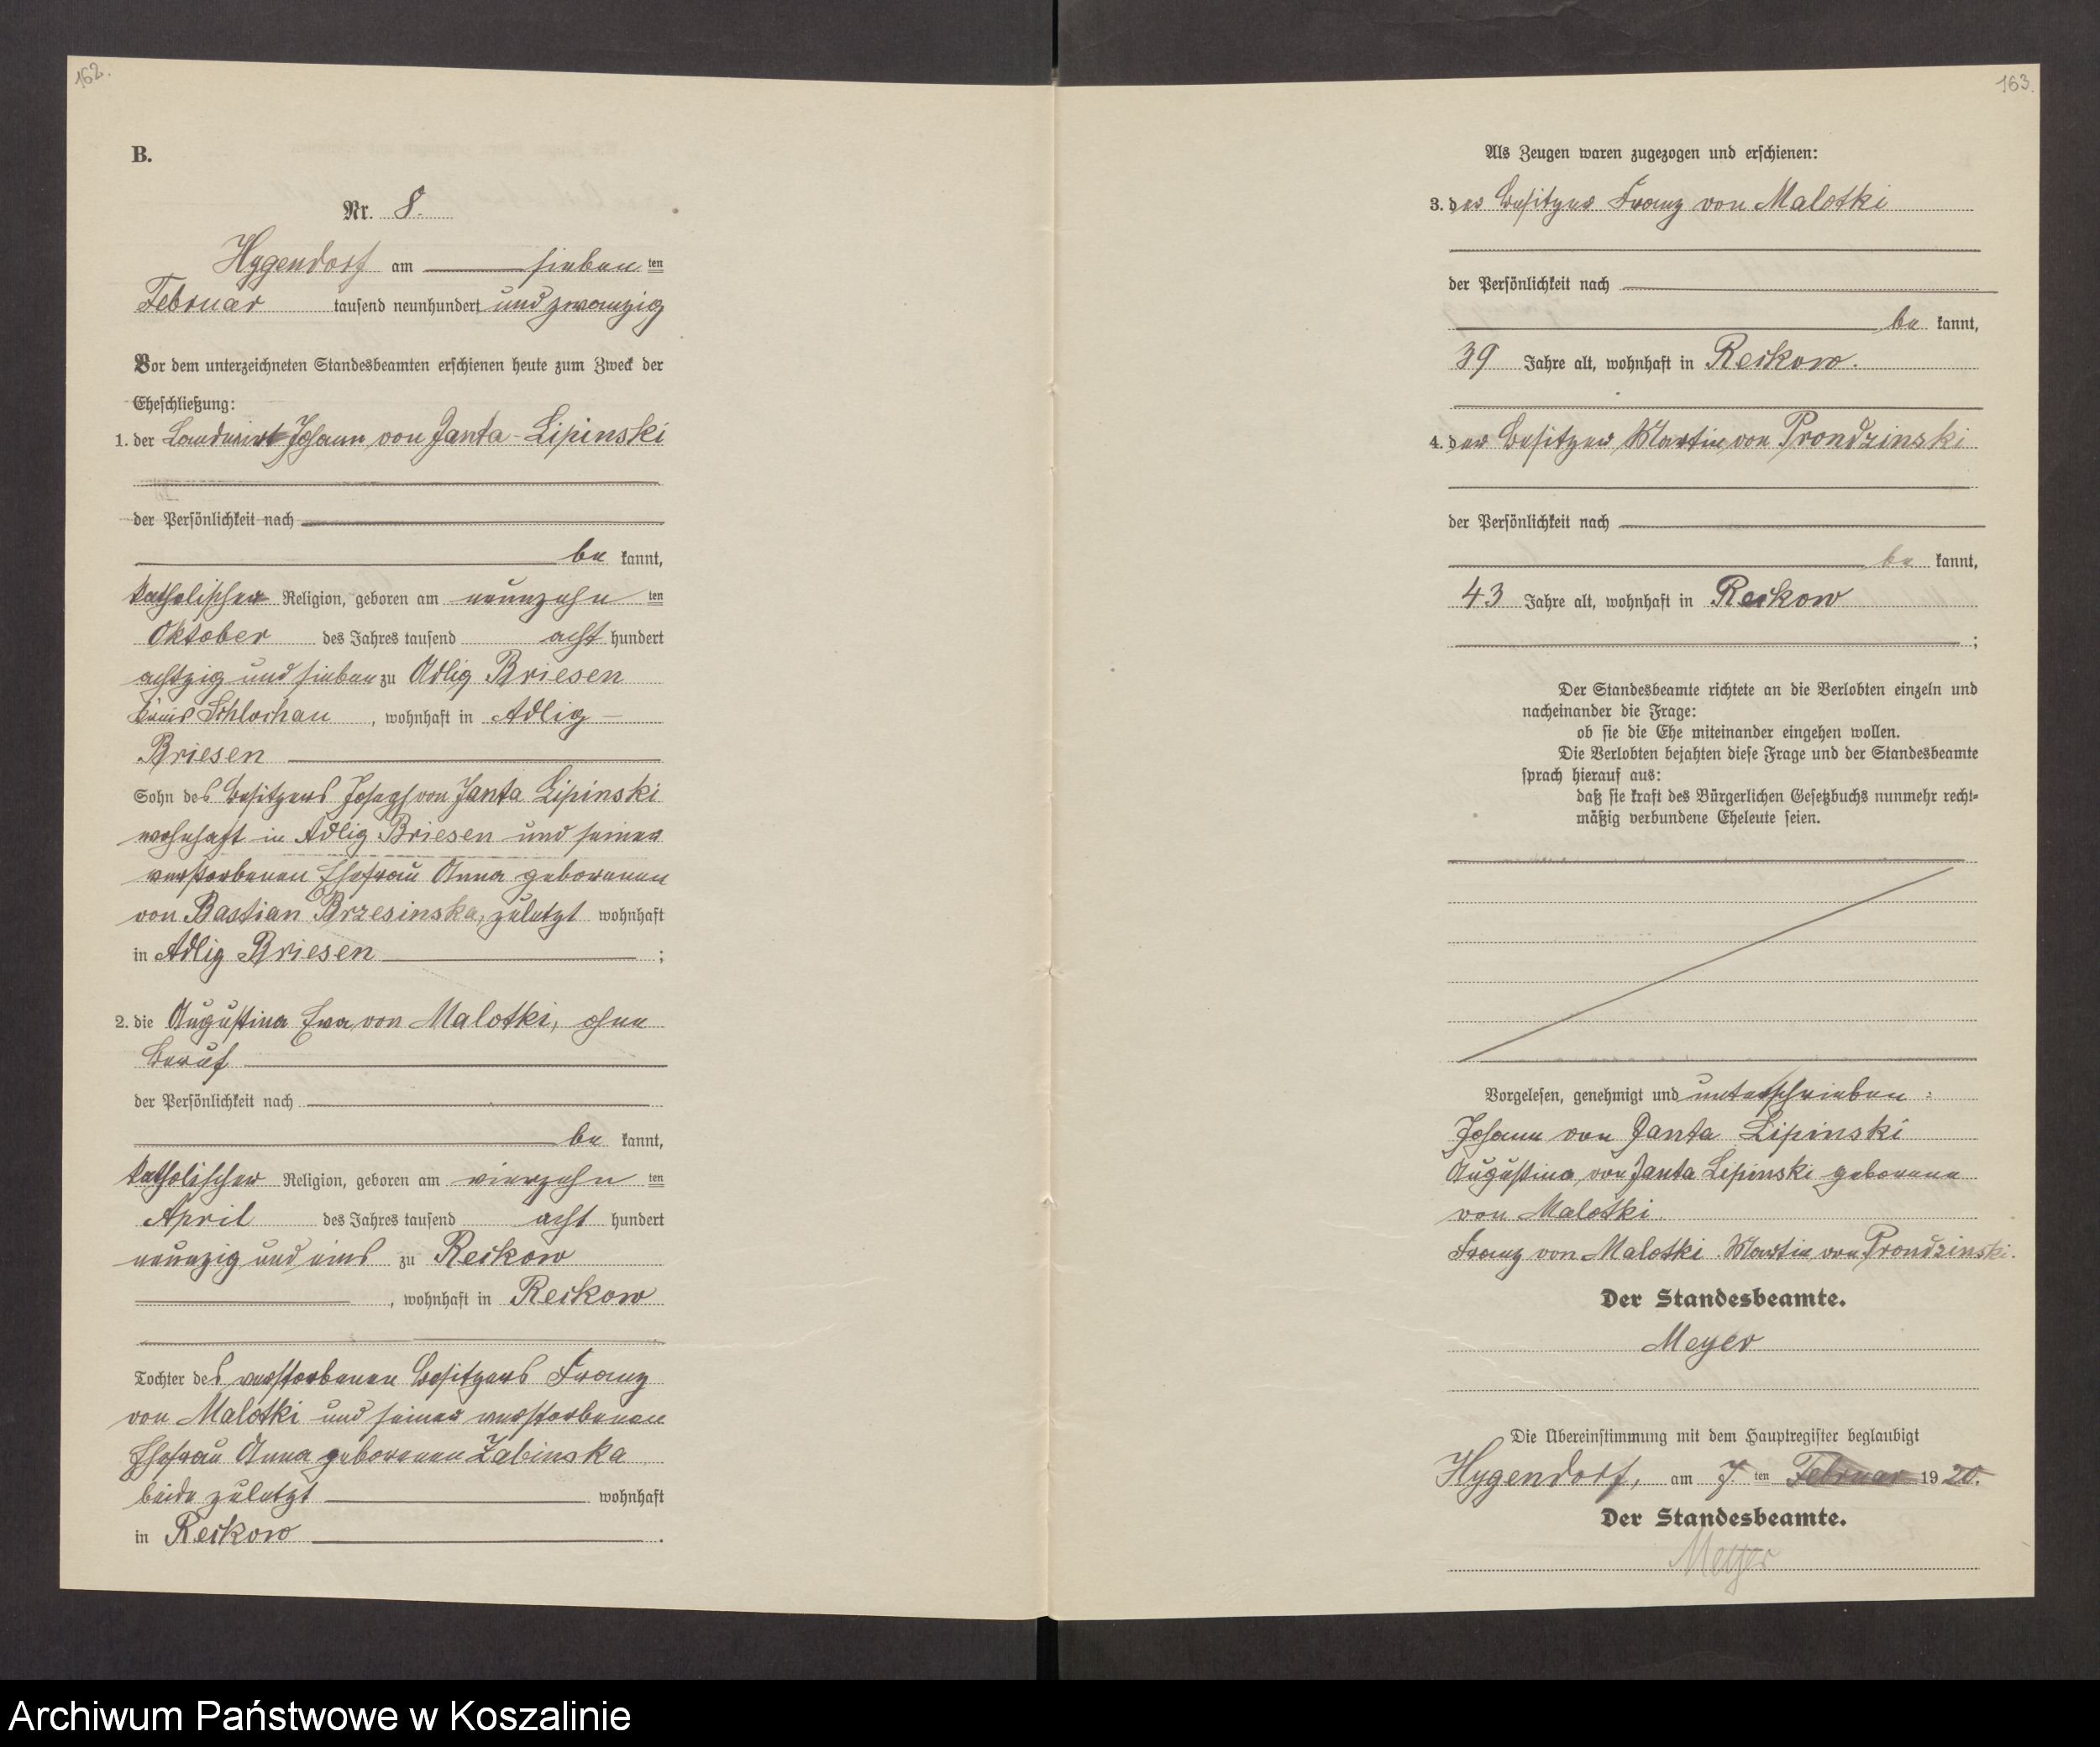 162.
B.
Nr. 8.
Hygendorf am sieben ten
Februar tausend neunhundert und zwanzig
Vor dem unterzeichneten Standesbeamten erschienen heute zum Zweck der
Eheschließung:
1. der Landwirt Johann von Janta-Lipinski
der Persönlichkeit nach
be kannt,
katholischer Religion, geboren am neunzehn ten
Oktober des Jahres tausend acht hundert
achtzig und sieben zu Adlig Briesen
Kreis Schlochau, wohnhaft in Adlig-
Briesen
Sohn des Besitzers Joseph von Janta Lipinski
wohnhaft in Adlig Briesen und seiner
verstorbenen Ehefrau Anna geborenen
von Bastian Brzesinska, zuletzt wohnhaft
in Adlig Briesen ;
2. die Augustina Eva von Malotki, ohne
Beruf
der Persönlichkeit nach
be kannt,
katholischer Religion, geboren am vierzehn ten
April des Jahres tausend acht hundert
neunzig und eins zu Reckow
, wohnhaft in Reckow
Tochter des verstorbenen Besitzers Franz
von Malotki und seiner verstorbenen
Ehefrau Anna geborenen Zabinska
beide zuletzt wohnhaft
in Reckow .
163.
Als Zeugen waren zugezogen und erschienen:
3. der Besitzer Franz von Malotki
der Persönlichkeit nach
be kannt,
39 Jahre alt, wohnhaft in Reckow.
4. der Besitzer Martin von Prondzinski
der Persönlichkeit nach
be kannt,
43 Jahre alt, wohnhaft in Reckow
;
Der Standesbeamte richtete an die Verlobten einzeln und
nacheinander die Frage:
ob sie die Ehe miteinander eingehen wollen.
Die Verlobten bejahten diese Frage und der Standesbeamte
sprach hierauf aus:
daß sie kraft des Bürgerlichen Gesetzbuchs nunmehr recht-
mäßig verbundene Eheleute seien.
Vorgelesen, genehmigt und unterschrieben:
Johann von Janta Lipinski
Augustina, von Janta Lipinski geborene
von Malotki.
Franz von Malotki. Martin von Prondzinski.
Der Standesbeamte.
Meyer
Die Übereinstimmung mit dem Hauptregister beglaubigt
Hygendorf, am 7 ten Februar 1920.
Der Standesbeamte.
Meyer
Archiwum Państwowe w Koszalinie